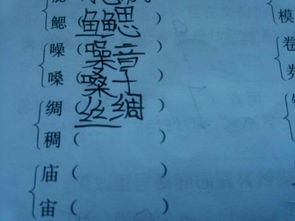 鳃（鱼鳃）
噪（噪音）
嗓（嗓子）
绸（丝绸）
稠（ ）
庙（ ）
宙（ ）
模
卷